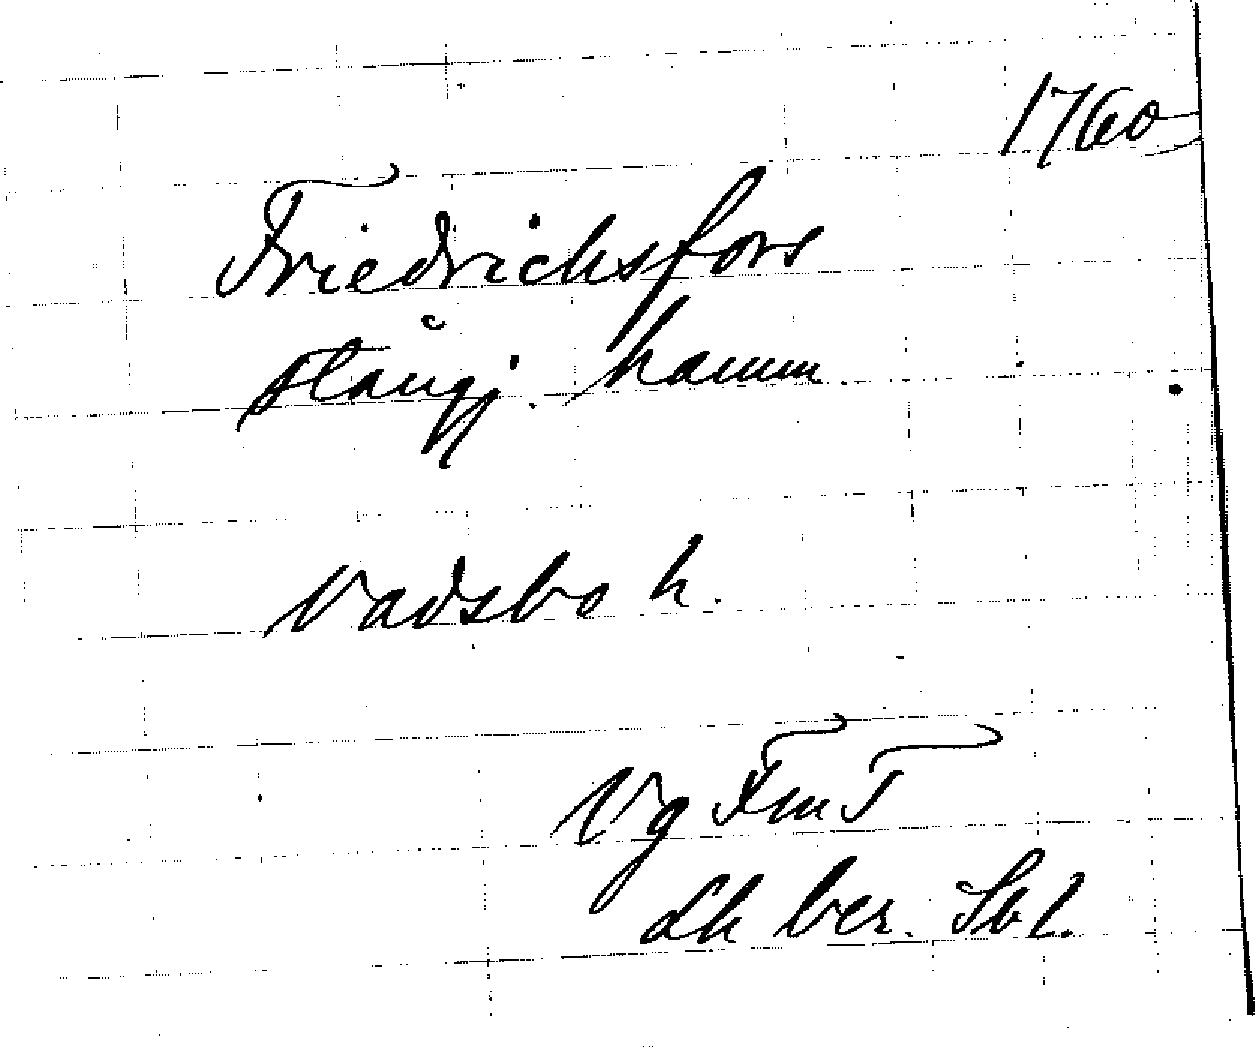 1760
Friedrichsfors
stångj. hamm
Vadsbo h.
Vg FmT
Lh ber. Sbl.